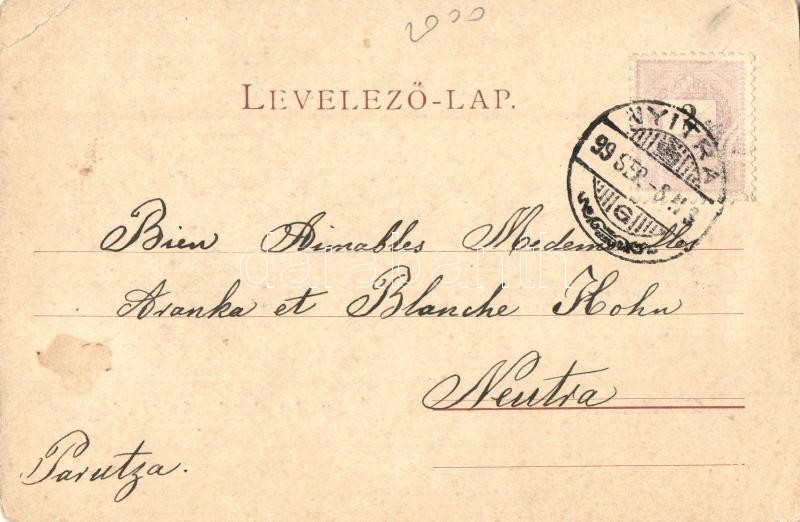 2000
LEVELEZŐ-LAP.
2
NYITRA
99 SEP.-8
G
Bien Aimables Medemoiselles
Aranka et Blanche Kohn
Neutra
Parutza.
darabanth